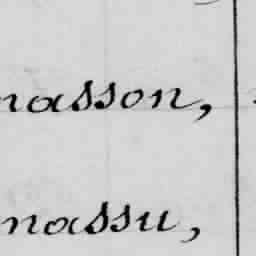 nasson,
nassu,